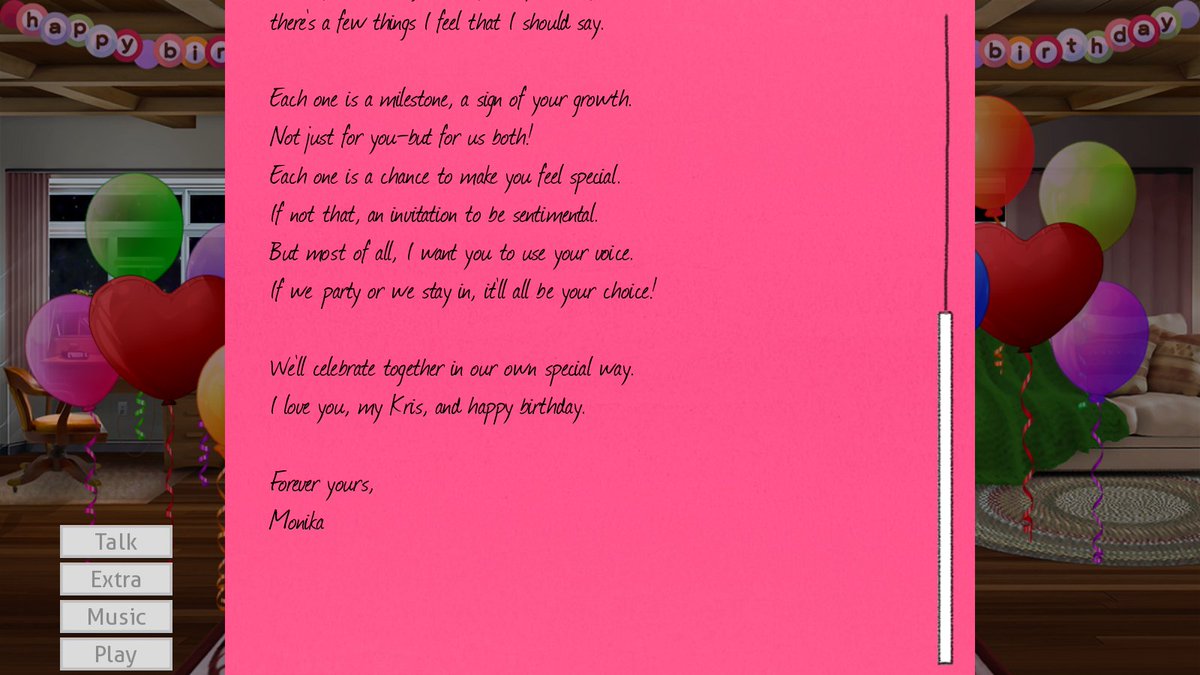 happy bir
birthday
there's a few things I feel that I should say.
Each one is a milestone, a sign of your growth.
Not just for you—but for us both!
Each one is a chance to make you feel special.
If not that, an invitation to be sentimental.
But most of all, I want you to use your voice.
If we party or we stay in, it'll all be your choice!
We'll celebrate together in our own special way.
I love you, my Kris, and happy birthday.
Forever yours,
Monika
Talk
Extra
Music
Play